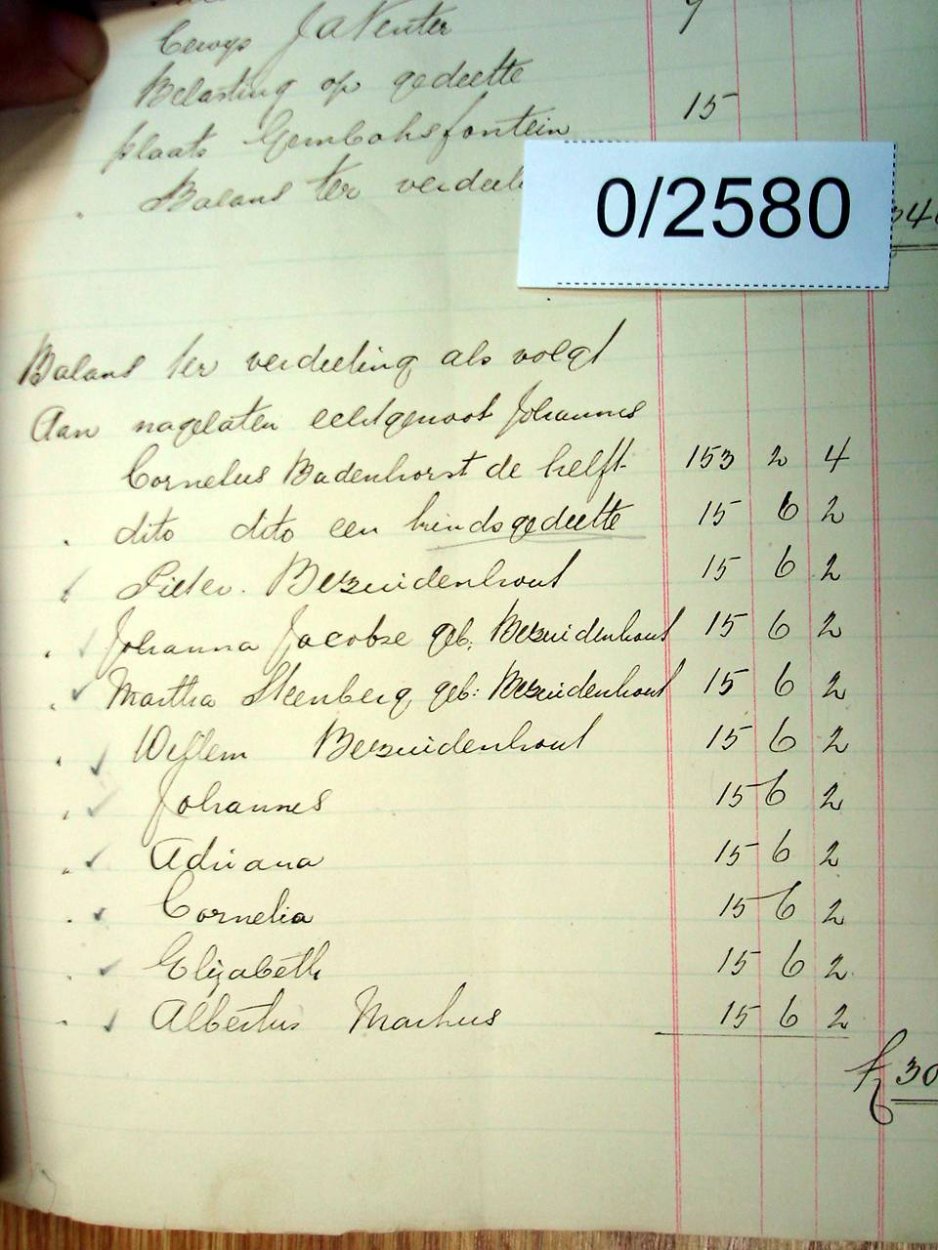 J A Venter 9
Belasting op gedeelte
plaats Gemboksfontein 15
Balans ter verdeel
0/2580
Balans ter verdeeling als volgt
Aan nagelaten echtgenoot Johannes
Cornelus Badenhorst de helft 153 2 4
" dito dito een kindsgedeelte 15 6 2
" Pieter. Bezuidenhout 15 6 2
" Johanna Jacobse geb: Bezuidenhout 15 6 2
" Martha Steenberg geb: Bezuidenhout 15 6 2
" Willem Bezuidenhout 15 6 2
" Johannes 15 6 2
" Adriana 15 6 2
" Cornelia 15 6 2
" Elizabeth 15 6 2
" Albertus Markus 15 6 2
£ 30